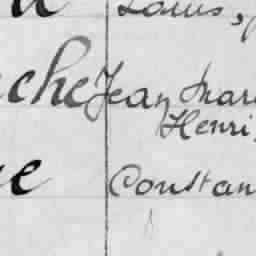 Louis,
che Jean Mar
Henri,
e Constan